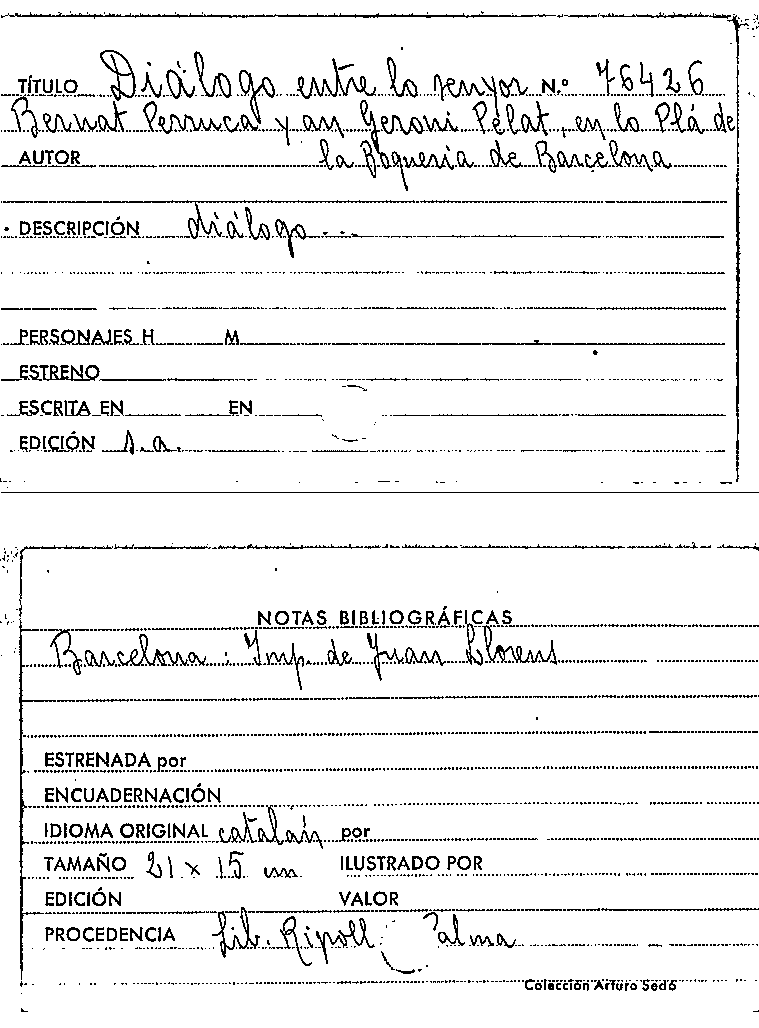 TÍTULO Diálogo entre lo senyor N.º 76426
Bernat Perruca y an Geroni Pelat, en lo Plá de
AUTOR la Boqueria de Barcelona
DESCRIPCIÓN diálogo...
PERSONAJES H M
ESTRENO
ESCRITA EN EN
EDICIÓN s.a.
NOTAS BIBLIOGRÁFICAS
Barcelona: Imp. de Juan Llorens
ESTRENADA por
ENCUADERNACIÓN
IDIOMA ORIGINAL catalán por
TAMAÑO 21 x 15 cm. ILUSTRADO POR
EDICIÓN VALOR
PROCEDENCIA Lib. Ripoll. Palma
Colección Arturo Sedó